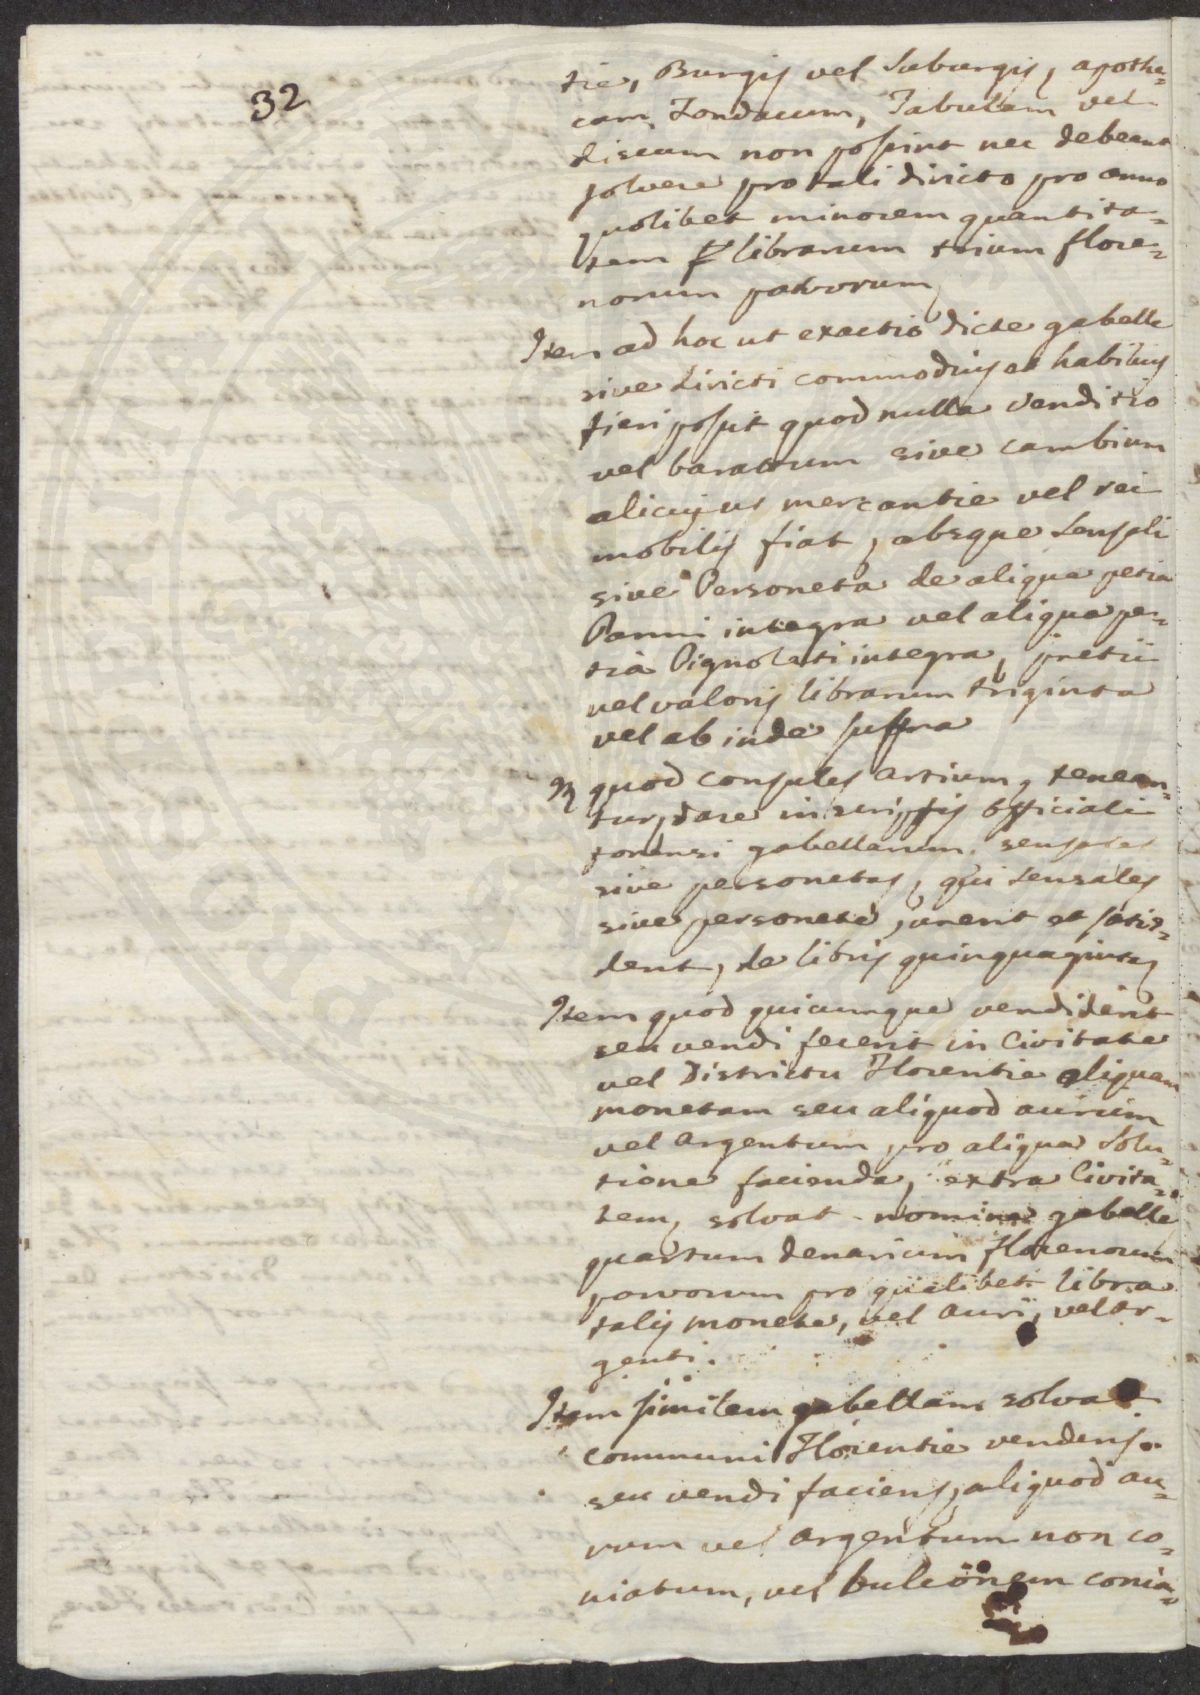 32
tie, Burgis vel Suburgis, apothe=
cam, Fondacum, Tabulam vel
discum non possint nec debeant
solvere pro tali diricto pro anno
quolibet minorem quantita=
tem librarum trium flore=
norum parvorum
Item ad hoc ut exactio dicte gabelle
sive diricti commodius et habilius
fieri possit quod nulla venditio
vel baractum sive cambium
alicujus mercantie vel rei
mobilis fiat, absque sensali
sive Personeta de aliqua petia
Panni integra vel aliqua pe=
tia Pignolati integra, pretii
vel valoris librarum triginta
vel ab inde supra
quod consules artium, tenean=
tur, dare in scriptis officiali
forensi gabellarum, sensales
sive personetas, qui sensales
sive personete, jurent et satis=
dent, de libris quinquaginta
Item quod quicumque vendiderit
seu vendi fecerit in Civitate
vel Districtu Florentie aliquam
monetam seu aliquod aurum
vel Argentum, pro aliqua Solu=
tione facienda, extra Civita=
tem, solvat nomine gabelle
quartum denarium florenorum
parvorum pro qualibet libra
talis monete, vel Auri, vel Ar=
genti.
Item similem gabellam solvat
communi Florentie vendens
seu vendi faciens, aliquod au=
rum vel Argentum non co=
niatum, vel bulcionem conia=